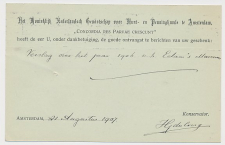 Het Koninklijk Nederlandsch Genootschap voor Munt- en Penningkunde te Amsterdam,
"CONCORDIA RES PARVAE CRESCUNT"
heeft de eer U, onder dankbetuiging, de goede ontvangst te berichten van uw geschenk:
Verslag over het jaar 1906
Amsterdam, 21 Augustus 1907
Konservator,